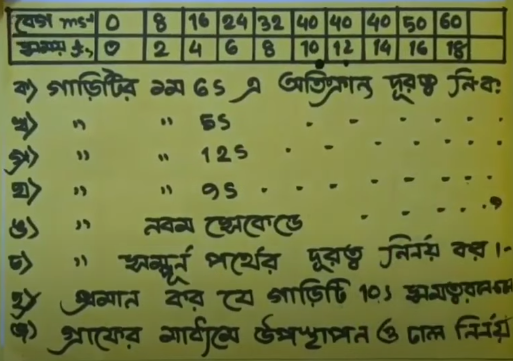 বেগ ms⁻¹ 0 8 16 24 32 40 40 40 50 60
সময় t, 0 2 4 6 8 10 12 14 16 18
ক) গাড়িটির ১ম 6s এ অতিক্রান্ত দূরত্ব নি.ব.
খ) " " 5s . . . . . .
গ) " " 12s . . . . . .
ঘ) " " 9s . . . . . .
ঙ) " নবম সেকেন্ডে . . . . ,
চ) " সম্পূর্ন পথের দূরত্ব নির্নয় কর।
ছ) প্রমান কর যে গাড়িটি 10s
জ) গ্রাফের মাধ্যমে উপস্থাপন ও ঢাল নির্নয়